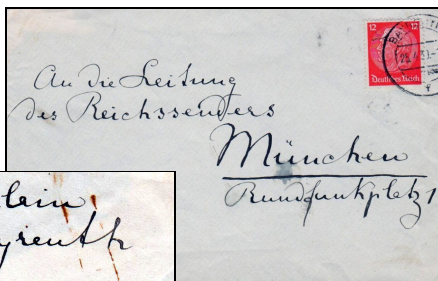 12 12
Deutsches Reich
An die Leitung
des Reichssenders
München
Rundfunkplatz 1